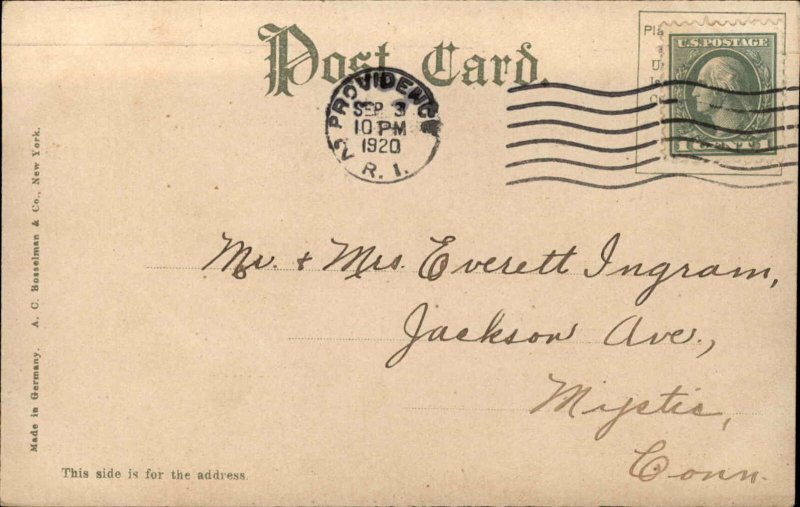 Post Card.
PROVIDENCE
SEP 3
10 PM
1920
2 R. I.
U.S. POSTAGE
1 CENT 1
Mr. + Mrs. Everett Ingram,
Jackson Ave.,
Mystic,
Conn.
Made in Germany. A. C. Bosselman & Co., New York.
This side is for the address.